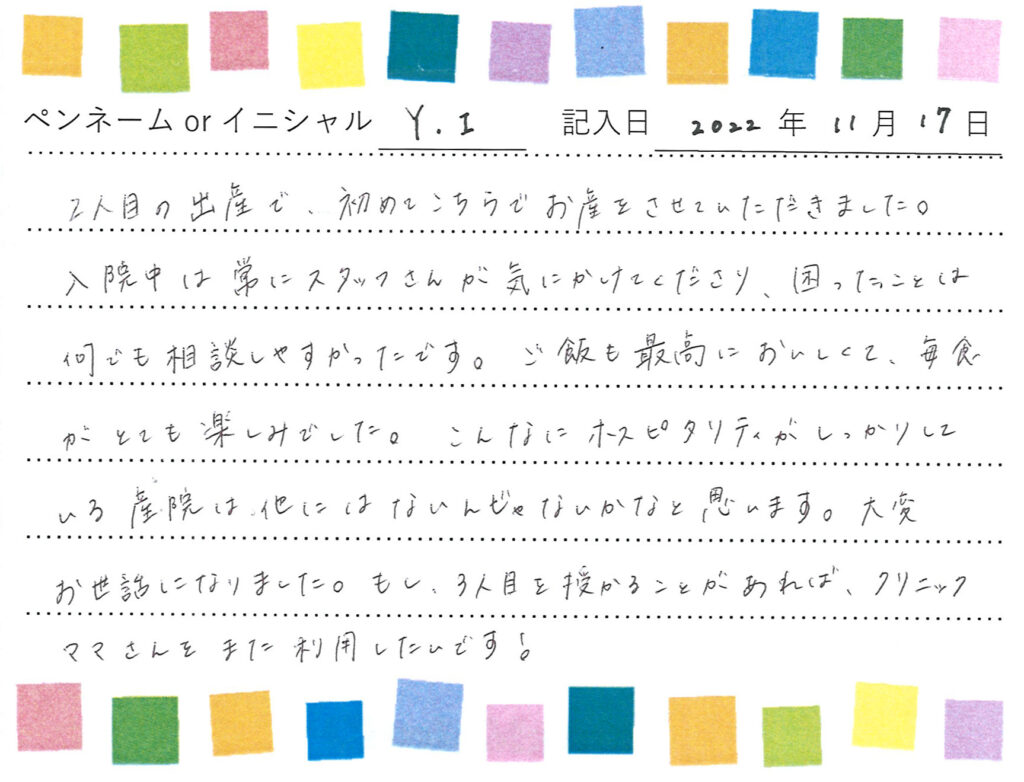 ペンネーム or イニシャル Y.I 記入日 2022年 11月 17日
2人目の出産で、初めてこちらでお産をさせていただきました。
入院中は常にスタッフさんが気にかけてくださり、困ったことは
何でも相談しやすかったです。ご飯も最高においしくて、毎食
がとても楽しみでした。こんなにホスピタリティがしっかりして
いる産院は他にはないんじゃないかなと思います。大変
お世話になりました。もし、3人目を授かることがあれば、クリニック
ママさんをまた利用したいです!